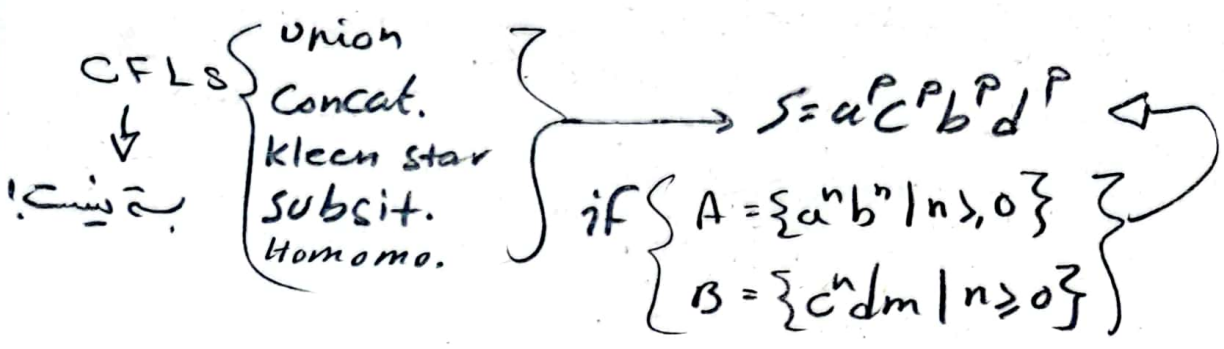 CFLs
↓
بسته نیست!
{ Union
Concat.
kleen star
subsit.
Homomo. }
→ S = aᵖcᵖbᵖdᵖ
if { A = {aⁿbⁿ | n ≥ 0}
B = {cⁿdm | n ≥ 0} }